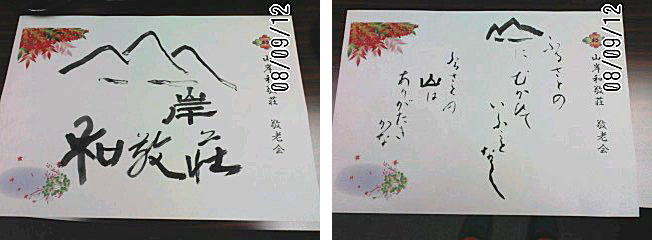 08/09/12
山岸和敬荘 敬老会
岸
和敬荘
08/09/12
山岸和敬荘 敬老会
ふるさとの
に むかひて
いふことなし
ふるさとの
山は
ありがたき
かな